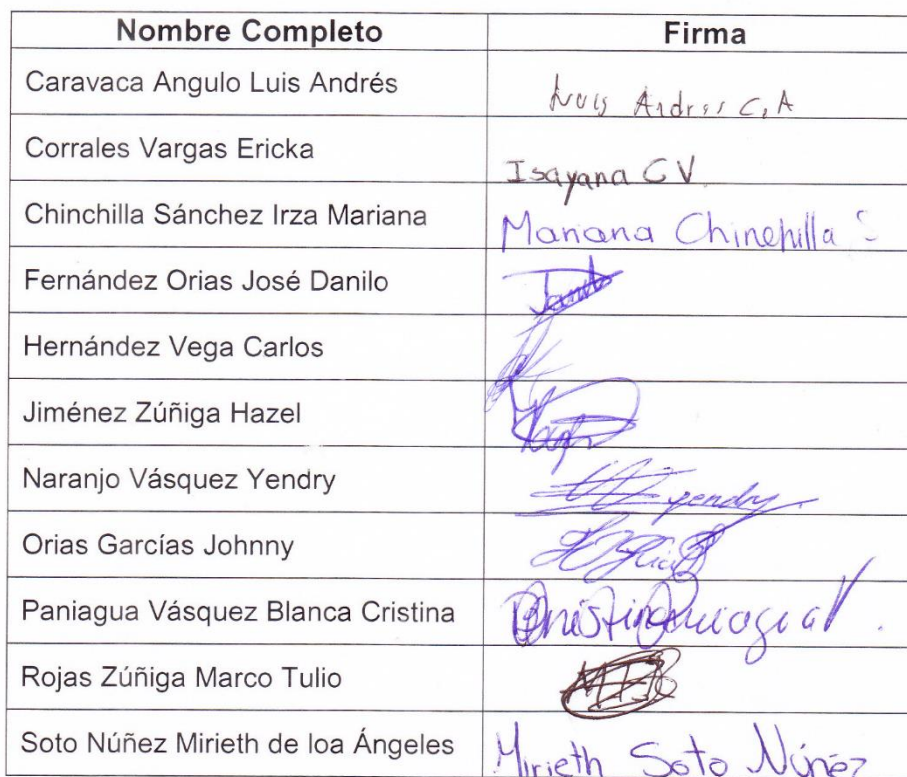 Nombre Completo Firma
Caravaca Angulo Luis Andrés Luis Andres C.A
Corrales Vargas Ericka Isayana C V
Chinchilla Sánchez Irza Mariana Mariana Chinchilla S
Fernández Orias José Danilo
Hernández Vega Carlos
Jiménez Zúñiga Hazel
Naranjo Vásquez Yendry Yendry
Orias Garcías Johnny
Paniagua Vásquez Blanca Cristina
Rojas Zúñiga Marco Tulio
Soto Núñez Mirieth de loa Ángeles Mirieth Soto Núñez